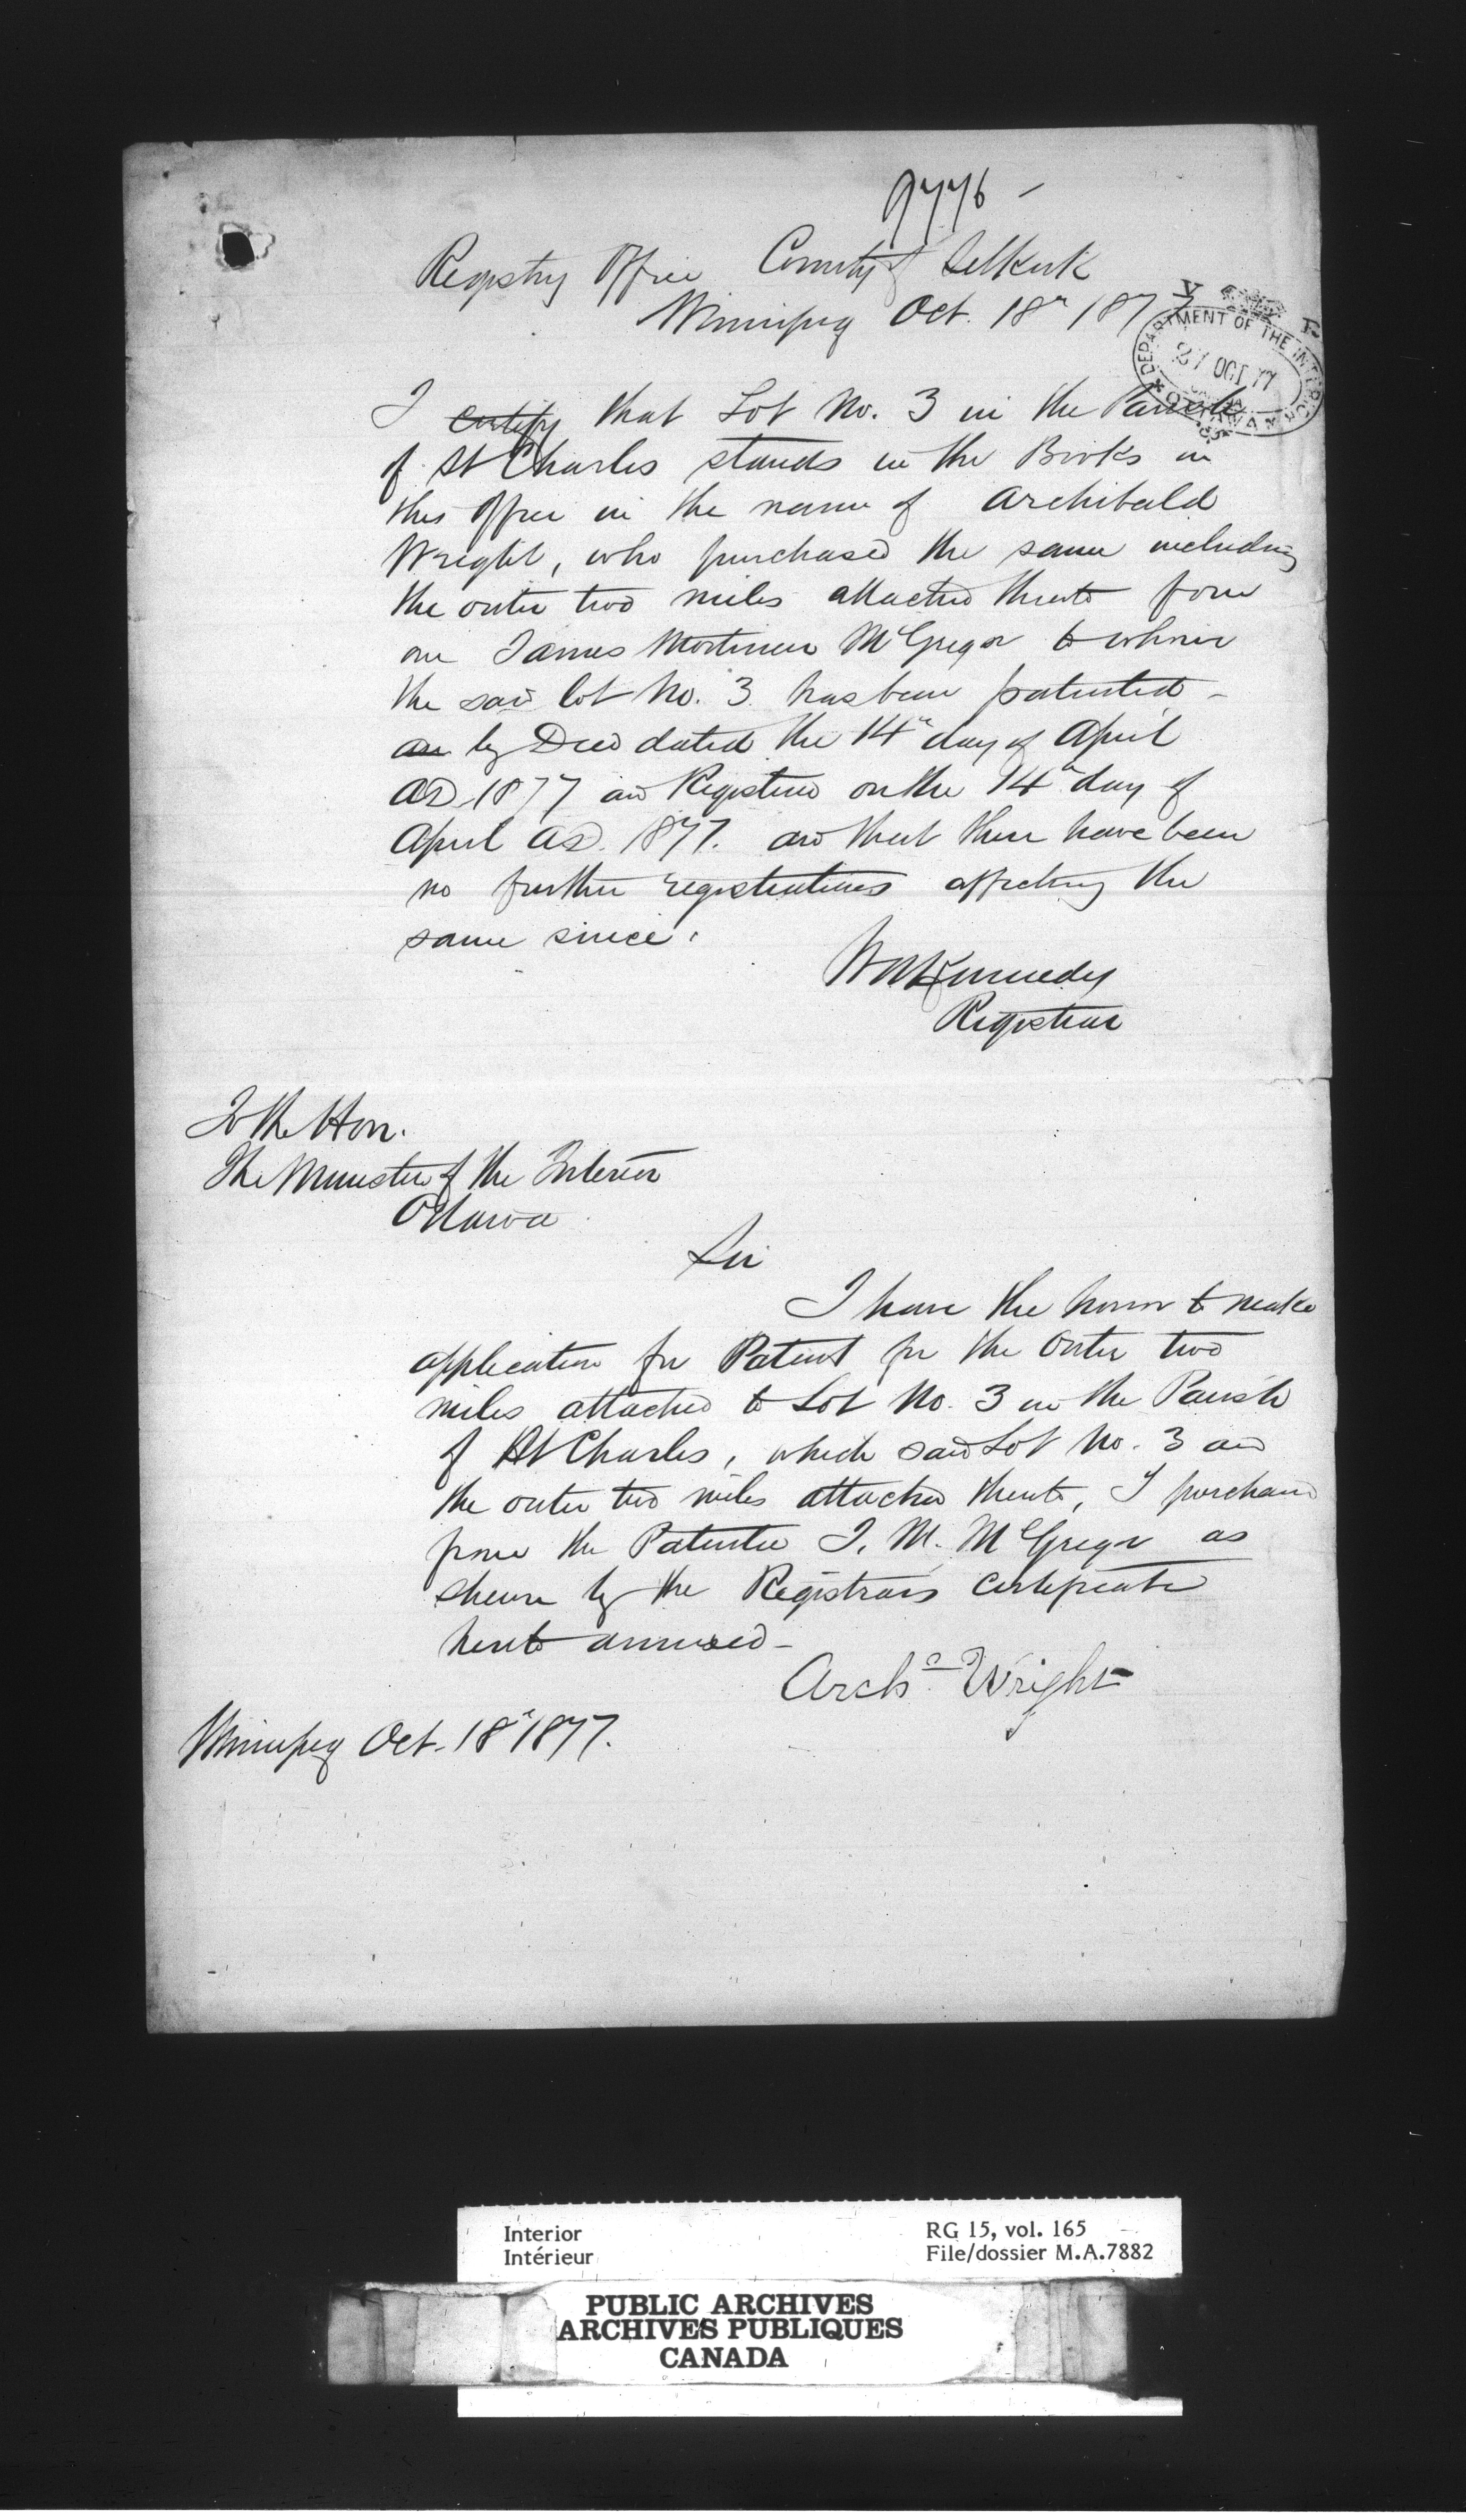 9776 -
Registry Office County of Selkirk
Winnipeg Oct. 18th 1877
DEPARTMENT OF THE INTERIOR
27 OCT 77
I certify that Lot No. 3 in the Parish
of St Charles stands in the Books in
this Office in the name of Archibald
Wright, who purchased the same including
the outer two miles attached thereto from
one James Mortimer McGregor to whom
the said lot No. 3 has been patented -
by Deed dated the 14th day of April
AD 1877 and Registered on the 14th day of
April AD. 1877. and that there have been
no further registrations affecting the
same since.
WN Kennedy
Registrar
To the Hon.
The Minister of the Interior
Ottawa
Sir
I have the honor to make
application for Patent for the Outer two
miles attached to Lot No. 3 in the Parish
of St Charles, which said Lot No. 3 and
the outer two miles attached thereto, I purchased
from the Patentee J. M. McGregor as
shewn by the Registrars Certificate
hereto annexed -
Archd. Wright
Winnipeg Oct. 18th 1877.
Interior
Intérieur
RG 15, vol. 165
File/dossier M.A.7882
PUBLIC ARCHIVES
ARCHIVES PUBLIQUES
CANADA